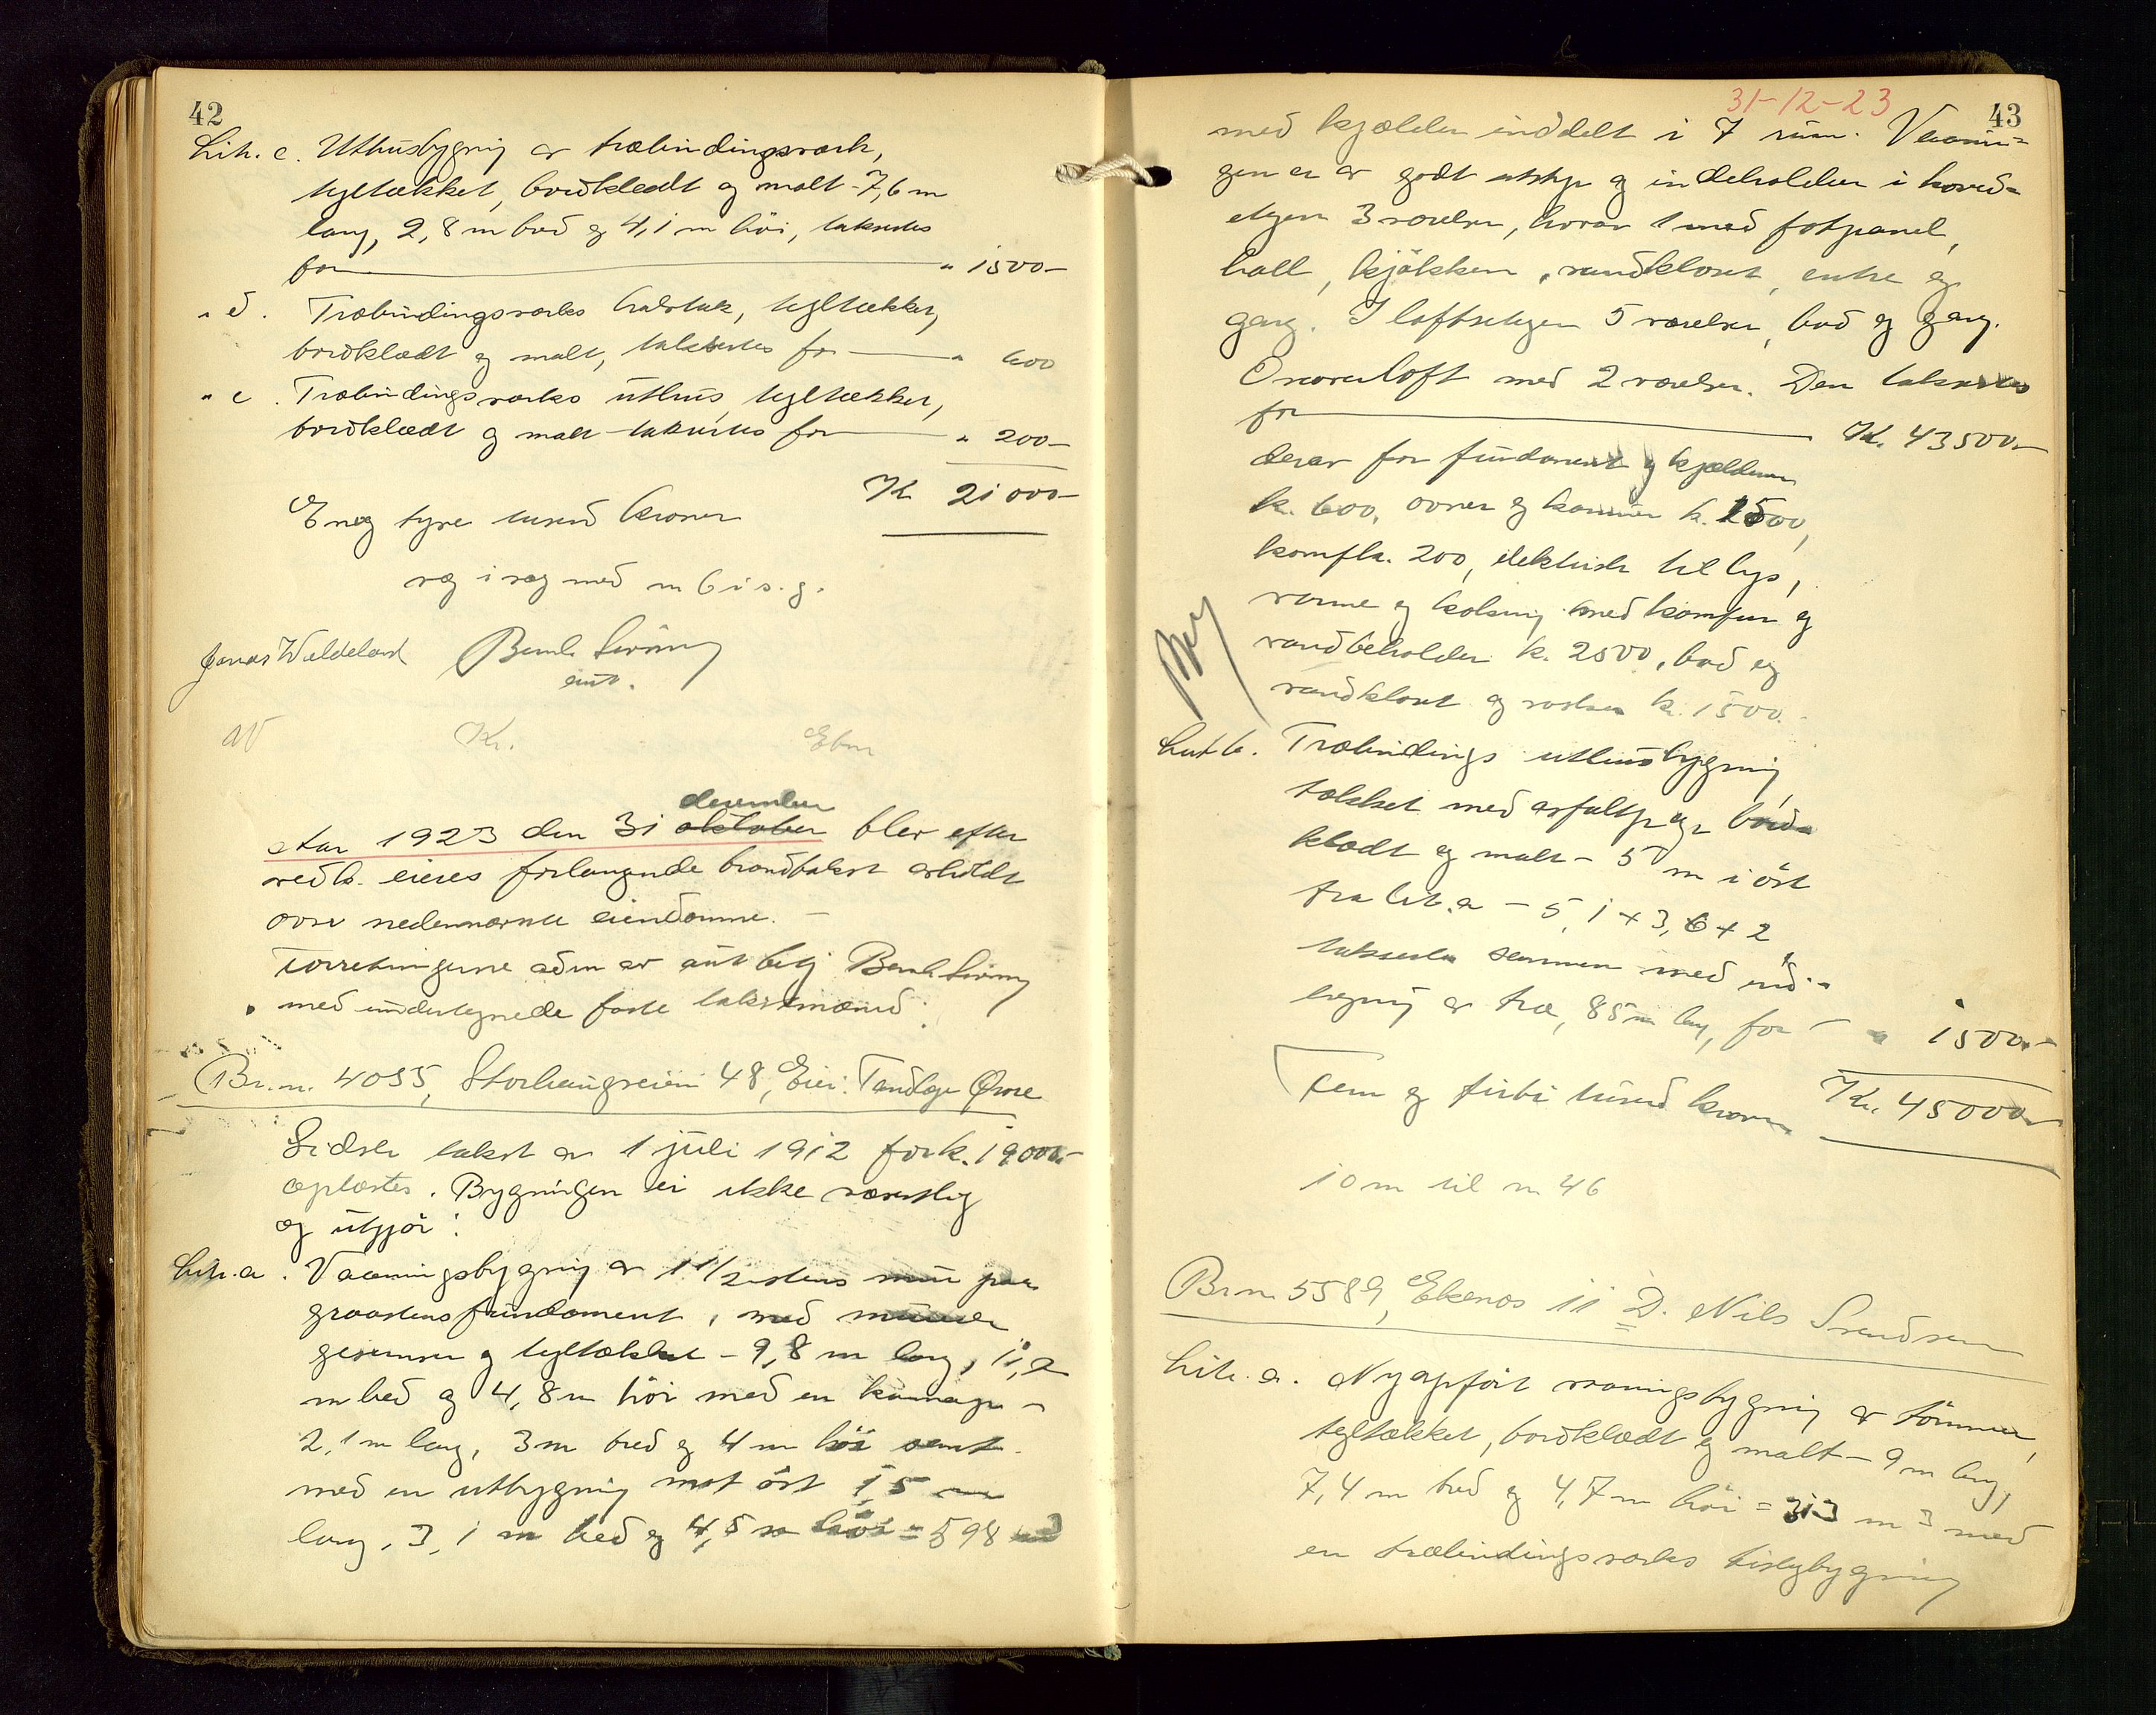 42
Lit. c. Uthusbygning av træbindingsverk,
tegltækket, bordklædt og malt - 7,6 m
lang, 2,8 m bred og 4,1 m høi, takseres
for " 1500-
" d. Træbindingsverks halvtak, tegltækket,
bordklædt og malt, takseres for "
" e. Træbindingsverks uthus, tegltækket,
bordklædt og malt takseres for " 200-
Kr 21000-
En og tyve tusend kroner
væg i væg med nr 6 i s. g.
Jonas Waldeland
aut.
av Kr. Ebm
december
Aar 1923 den 31 oktober blev efter
vedk. eieres forlangende brandtakst avholdt
over nedennævnte eiendomme. -
Forretningerne adm av aut betj
med undertegnede faste takstmænd:
Br. nr. 4055, Storhaugveien 48, Eier: Tandlæge
Sidste takst av 1 juli 1912 for k. 19000.-
oplæstes. Bygningen er ikke væsentlig
og utgjør:
Lit. a. Vaaningsbygning av 1 1/2 stens mur paa
graastensfundament, med murede
gesimser og tegltækket - 9,8 m lang, 11,2
m bred og 4,8 m høi med en karnap -
2,1 m lang, 3 m bred og 4 m høi samt
med en utbygning mot øst 1,5 m
lang, 3,1 m bred og 4,5 m høi = 598 m3
31-12-23
43
med kjælder inddelt i 7 rum. Vaanin=
gen er av godt utstyr og indeholder i hoved=
etagen 3 værelser, hvorav 1 med fotpanel,
hall, kjøkken, vandkloset, entre og
gang. I loftsetagen 5 værelser, bad og gang.
Øverstloft med 2 værelser. Den takseres
for Kr. 43500.-
derav for fundament og kjælderen
k. 600, ovner og kaminer k. 1500,
komf k. 200, elektrisk til lys,
varme og kokning med komfur og
vandbeholder k. 2500, bad og
vandkloset og vasker k. 1500.-
Lit b. Træbindings uthusbygning,
tækket med asfaltpap bord=
klædt og malt - 5 m i øst
fra lit. a - 5,1 + 3,6 + 2
takseres sammen med ind=
hegning av træ, 85 m lang, for - " 1500.-
Fem og firti tusend kroner Kr. 45000.-
10 m til nr 46
Br nr 5589, Ekenæs 11 D. Nils Svendsen
Lit. a. Nyopført vaaningsbygning av tømmer,
tegltækket, bordklædt og malt - 9 m lang,
7,4 m bred og 4,7 m høi = 313 m 3 med
en træbindingsverks bislagbygning